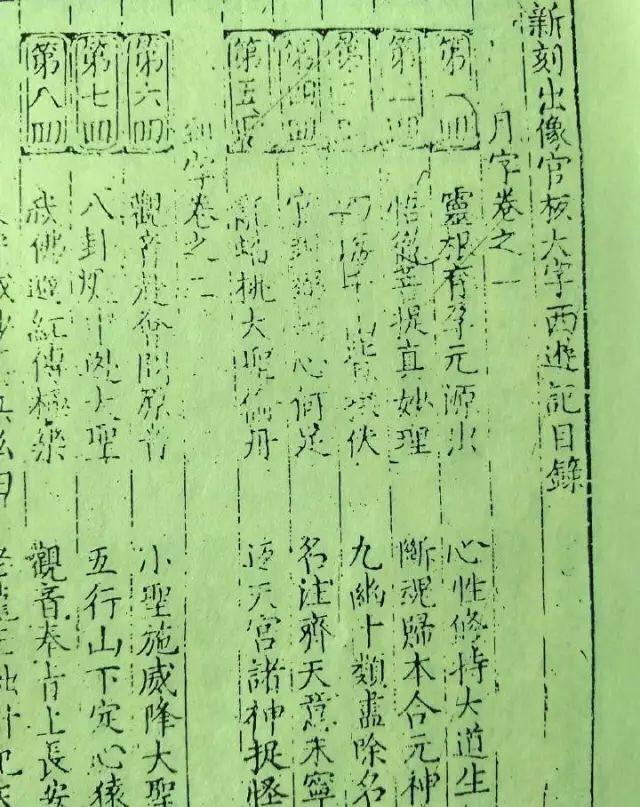 新刻出像官板大字西遊記目錄
月字卷之一
第一回 靈根育孕元源出 心性修持大道生
第二回 悟徹菩提真妙理 斷魂歸本合元神
第三回 四海千山皆拱伏 九幽十類盡除名
第四回 官封弼馬心何足 名注齊天意未寧
第五回 亂蟠桃大聖偷丹 反天宮諸神捉怪
到字卷之二
第六回 觀音赴會問原音 小聖施威降大聖
第七回 八卦爐中逃大聖 五行山下定心猿
第八回 我佛造經傳極樂 觀音奉旨上長安